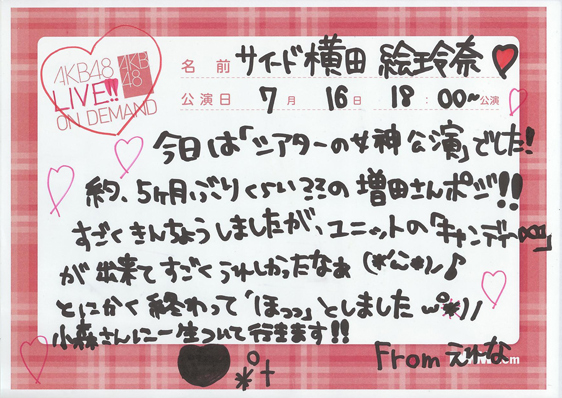 AKB48
LIVE!!
ON DEMAND
AKB
48
名前 サイード横田 絵玲奈
公演日 7月 16日 18:00~公演
今日は「シアターの女神公演」でした!
約、5ヶ月ぶりくらいの増田さんポジ!!
すごくきんちょうしましたが、ユニットの「キャンディー」
が出来てすごくうれしかったなぁ (*´ω`*)ノ♪
とにかく終わって「ほっっ」としました ω°*)ノ
小森さんに一生ついて行きます!!
From えれな